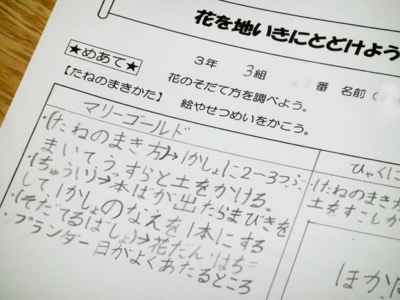 花を地いきにとどけよう
3年 3組 番 名前(
★めあて★ 花のそだて方を調べよう。
【たねのまきかた】 絵やせつめいをかこう。
マリーゴールド
・(たねのまき方)→1かしょに2~3つぶ
まいてうっすらと土をかける。
・(ちゅうい)→本ばが出たらまびきを
して1かしょのなえを1本にする
・(そだてるばしょ)→花だん・はち=
プランター 日がよくあたるところ
ひゃくに
・(たねのまき方
土をすこしか
ほかた